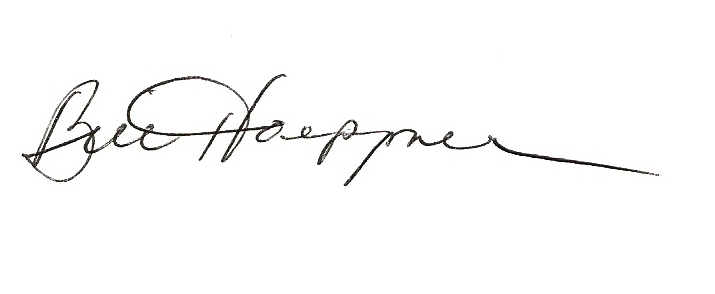 Bill Hoeppner